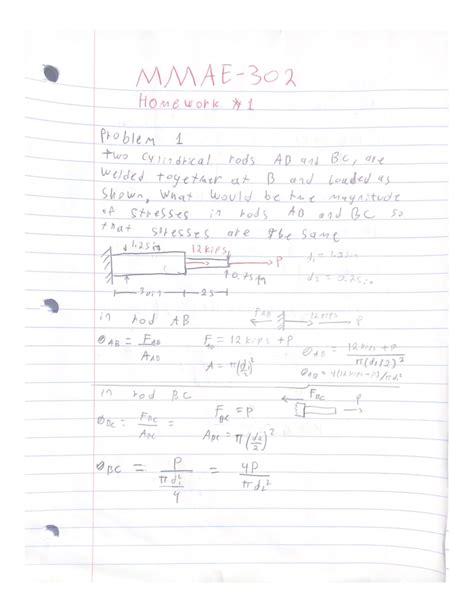 MMAE-302
Homework #1
Problem 1
Two cylindrical rods AB and BC, are
welded together at B and loaded as
shown, What would be the magnitude
of stresses in rods AB and BC so
that stresses are the same
1.25in 12 kips P d₁ = 1.25in
0.75in d₂ = 0.75in
30in 25
in rod AB F_AB 12kips P
σ_AB = F_AB/A_AB F_AB = 12 kips + P σ_AB = 12 kips + P/π(d₁/2)²
A = π(d₁/2)²
in rod BC F_BC P
σ_BC = F_BC/A_BC F_BC = P
A_BC = π(d₂/2)²
σ_BC = P/(πd₂²/4) = 4P/πd₂²